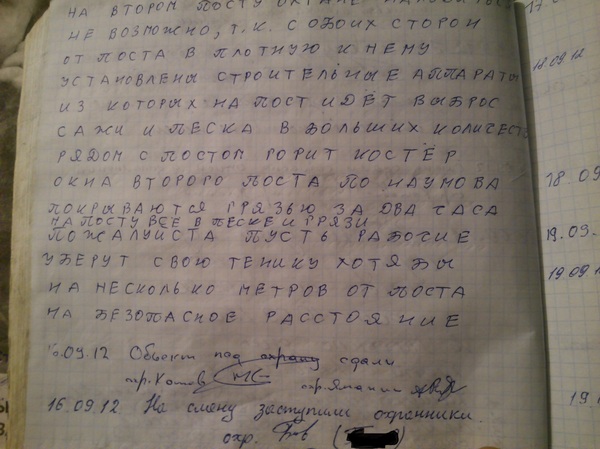 НА ВТОРОМ ПОСТУ ОХРАНЕ
НЕ ВОЗМОЖНО, Т.К. С ОБОИХ СТОРОН
ОТ ПОСТА В ПЛОТНУЮ К НЕМУ
УСТАНОВЛЕНЫ СТРОИТЕЛЬНЫЕ АППАРАТЫ
ИЗ КОТОРЫХ НА ПОСТ ИДЁТ ВЫБРОС
САЖИ И ПЕСКА В БОЛЬШИХ КОЛИЧЕСТ
РЯДОМ С ПОСТОМ ГОРИТ КОСТЁР
ОКНА ВТОРОГО ПОСТА ПО НАУМОВА
ПОКРЫВАЮТСЯ ГРЯЗЬЮ ЗА ДВА ЧАСА
НА ПОСТУ ВСЁ В ПЕСКЕ И ГРЯЗИ
ПОЖАЛУЙСТА ПУСТЬ РАБОЧИЕ
УБЕРУТ СВОЮ ТЕНИКУ ХОТЯ БЫ
НА НЕСКОЛЬКО МЕТРОВ ОТ ПОСТА
НА БЕЗОПАСНОЕ РАССТОЯНИЕ
.09.12 Объект под охрану сдали
охр.
16.09.12 На смену заступили охранники
охр.
17
18.09
19.09.
19.09
19.1